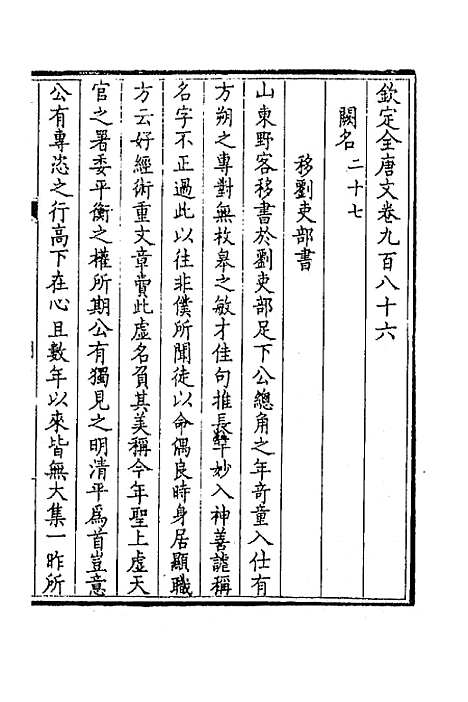 欽定全唐文卷九百八十六
闕名二十七
移劉吏部書
山東野客移書於劉吏部足下公總角之年奇童入仕有
方朔之專對無枚皋之敏才佳句推長竿妙入神善謔稱
名字不正過此以往非僕所聞徒以命偶良時身居顯職
方云好經術重文章賣此虛名負其美稱今年聖上虛天
官之署委平衡之權所期公有獨見之明清平爲首豈意
公有專恣之行高下在心且數年以來皆無大集一昨所